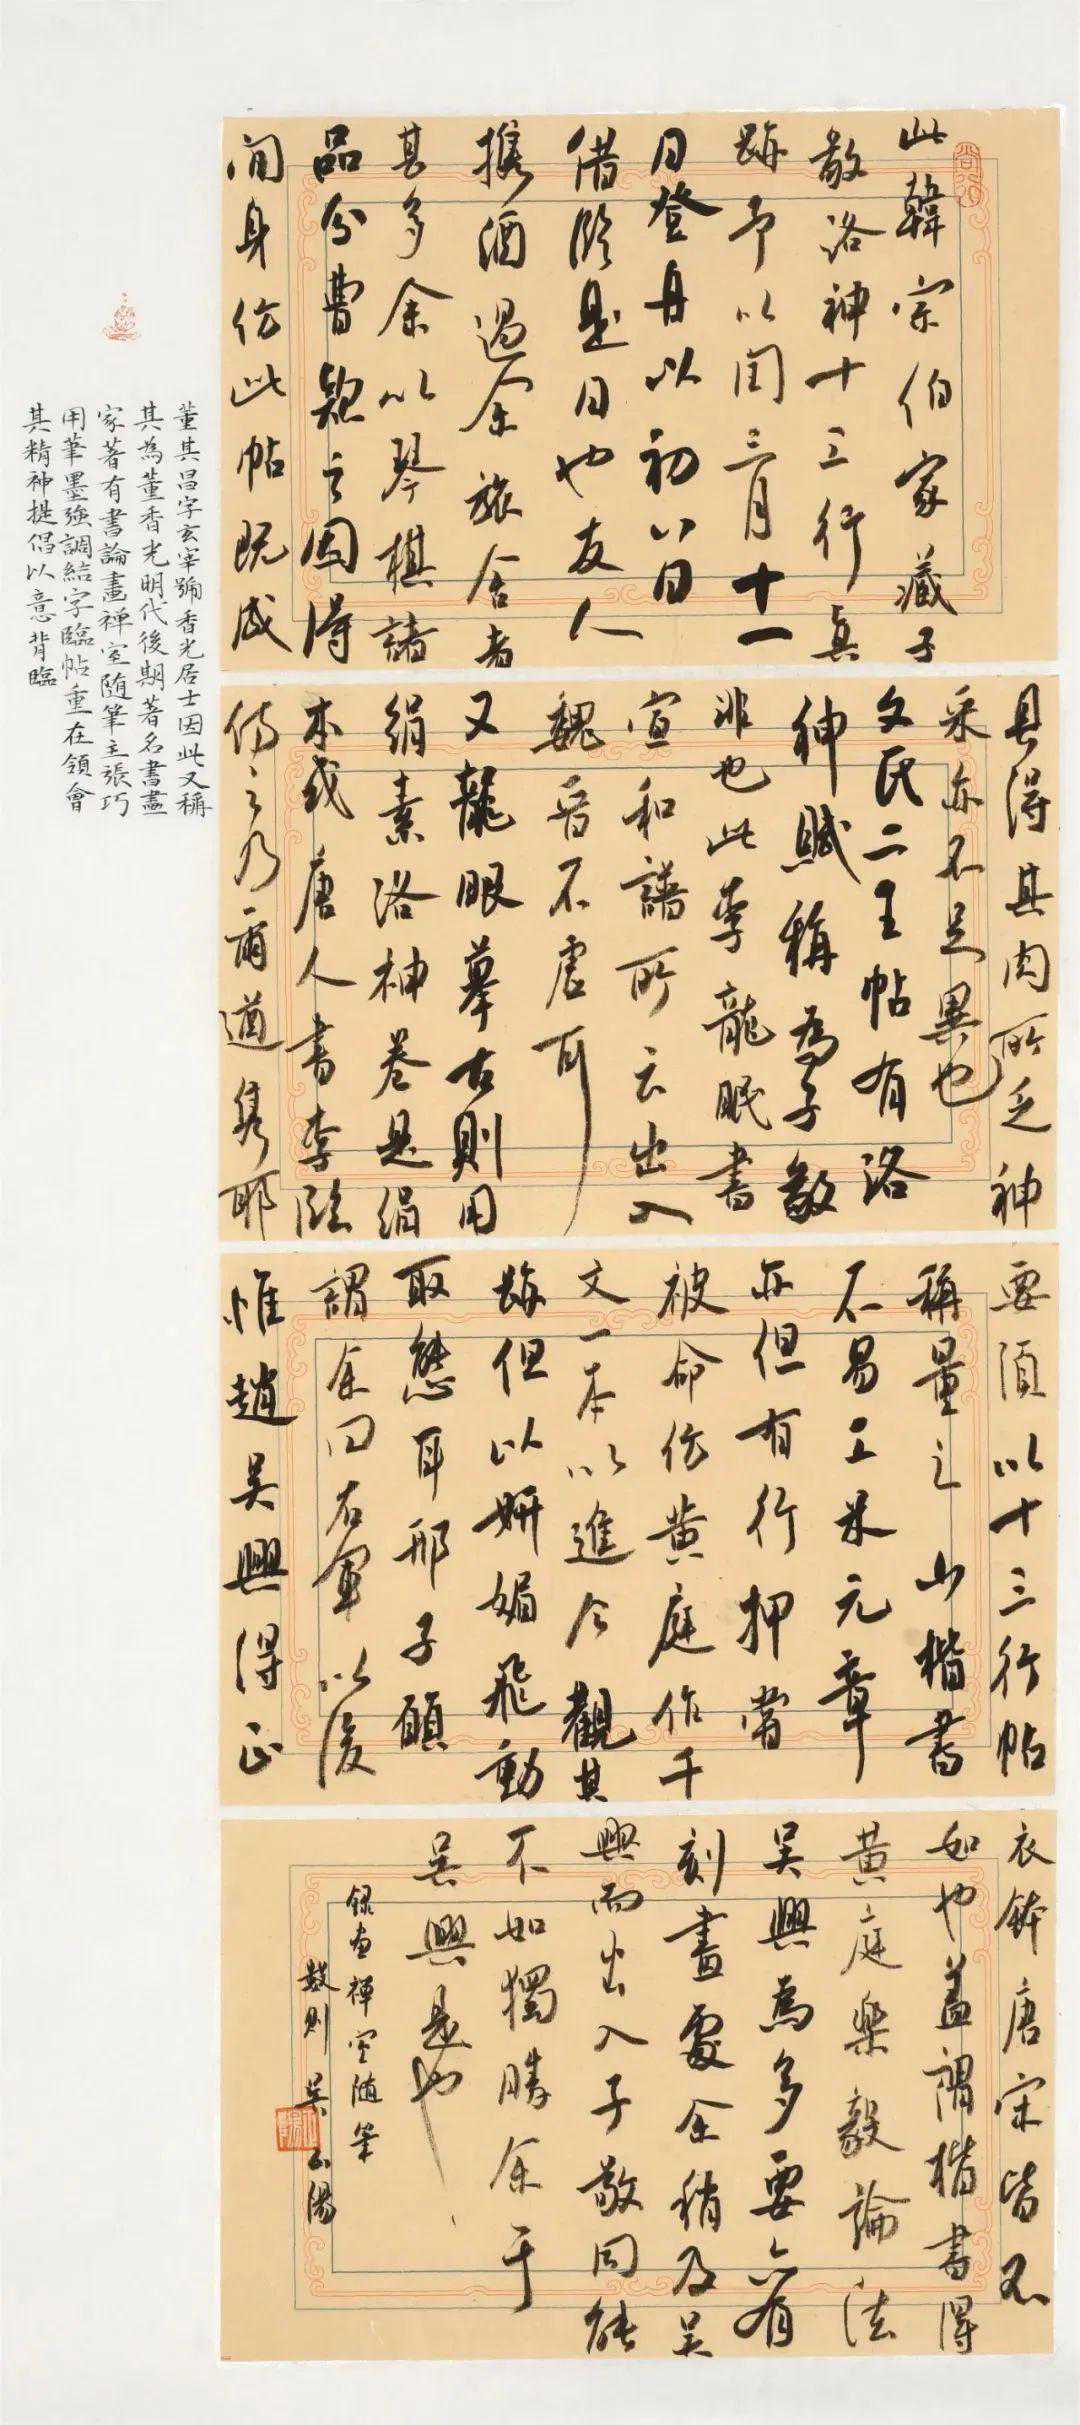 此韓宗伯家藏子
敬洛神十三行真
跡予以閏三月十一
日登舟以初八日
借臨是日也友人
攜酒過余旅舍者
甚多余以琴棋諸
品分曹款之因得
閒身仿此帖既成
具得其肉所乏神
采亦不足異也
文氏二王帖有洛
神賦稱為子敬
非也此李龍眠書
宣和譜所云出入
魏晉不虛耳
又龍眼摹古則用
絹素洛神卷是絹
本或唐人書李臨
仿之乃爾遒雋耶
要須以十三行帖
稱量之 小楷書
不易工米元章
亦但有行押嘗
被命仿黃庭作千
文一本以進今觀其
跡但以妍媚飛動
取態耳邢子愿
謂余曰右軍以後
惟趙吳興得正
衣鉢唐宋皆不
如也蓋謂楷書得
黃庭樂毅論法
吳興為多要亦有
刻畫處余稍及吳
興而出入子敬同能
不如獨勝余于
吳興是也
錄畫禪室隨筆
數則 吳
董其昌字玄宰號香光居士因此又稱
其為董香光明代後期著名書畫
家著有書論畫禪室隨筆主張巧
用筆墨強調結字臨帖重在領會
其精神提倡以意背臨